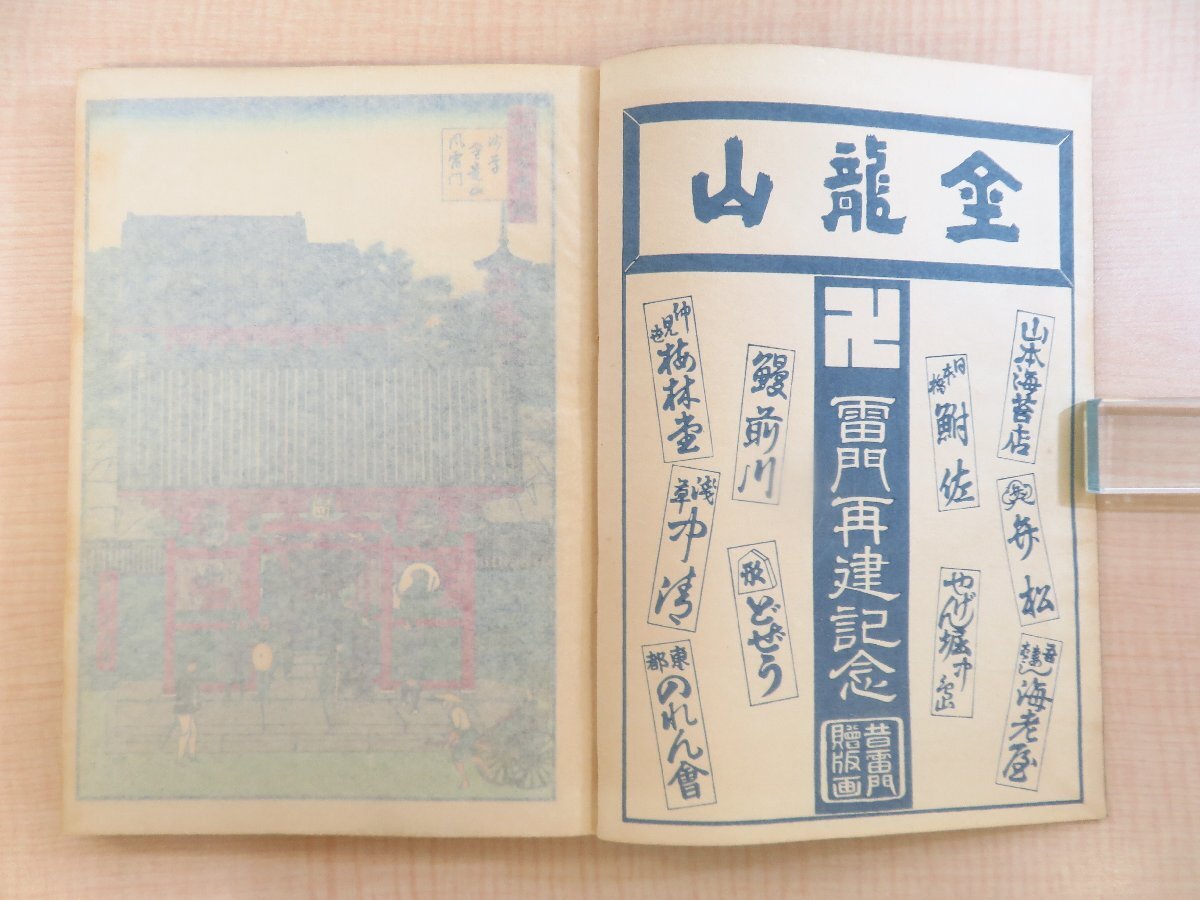 金龍山
卍
雷門再建記念
昔雷門
贈版画
山本海苔店
弁松
海老屋
日本橋
鮒佐
やげん堀中島
鰻前川
駒形
どぜう
仲見世
梅林堂
浅草
中清
東都
のれん會
浅草
金龍山
風雷門